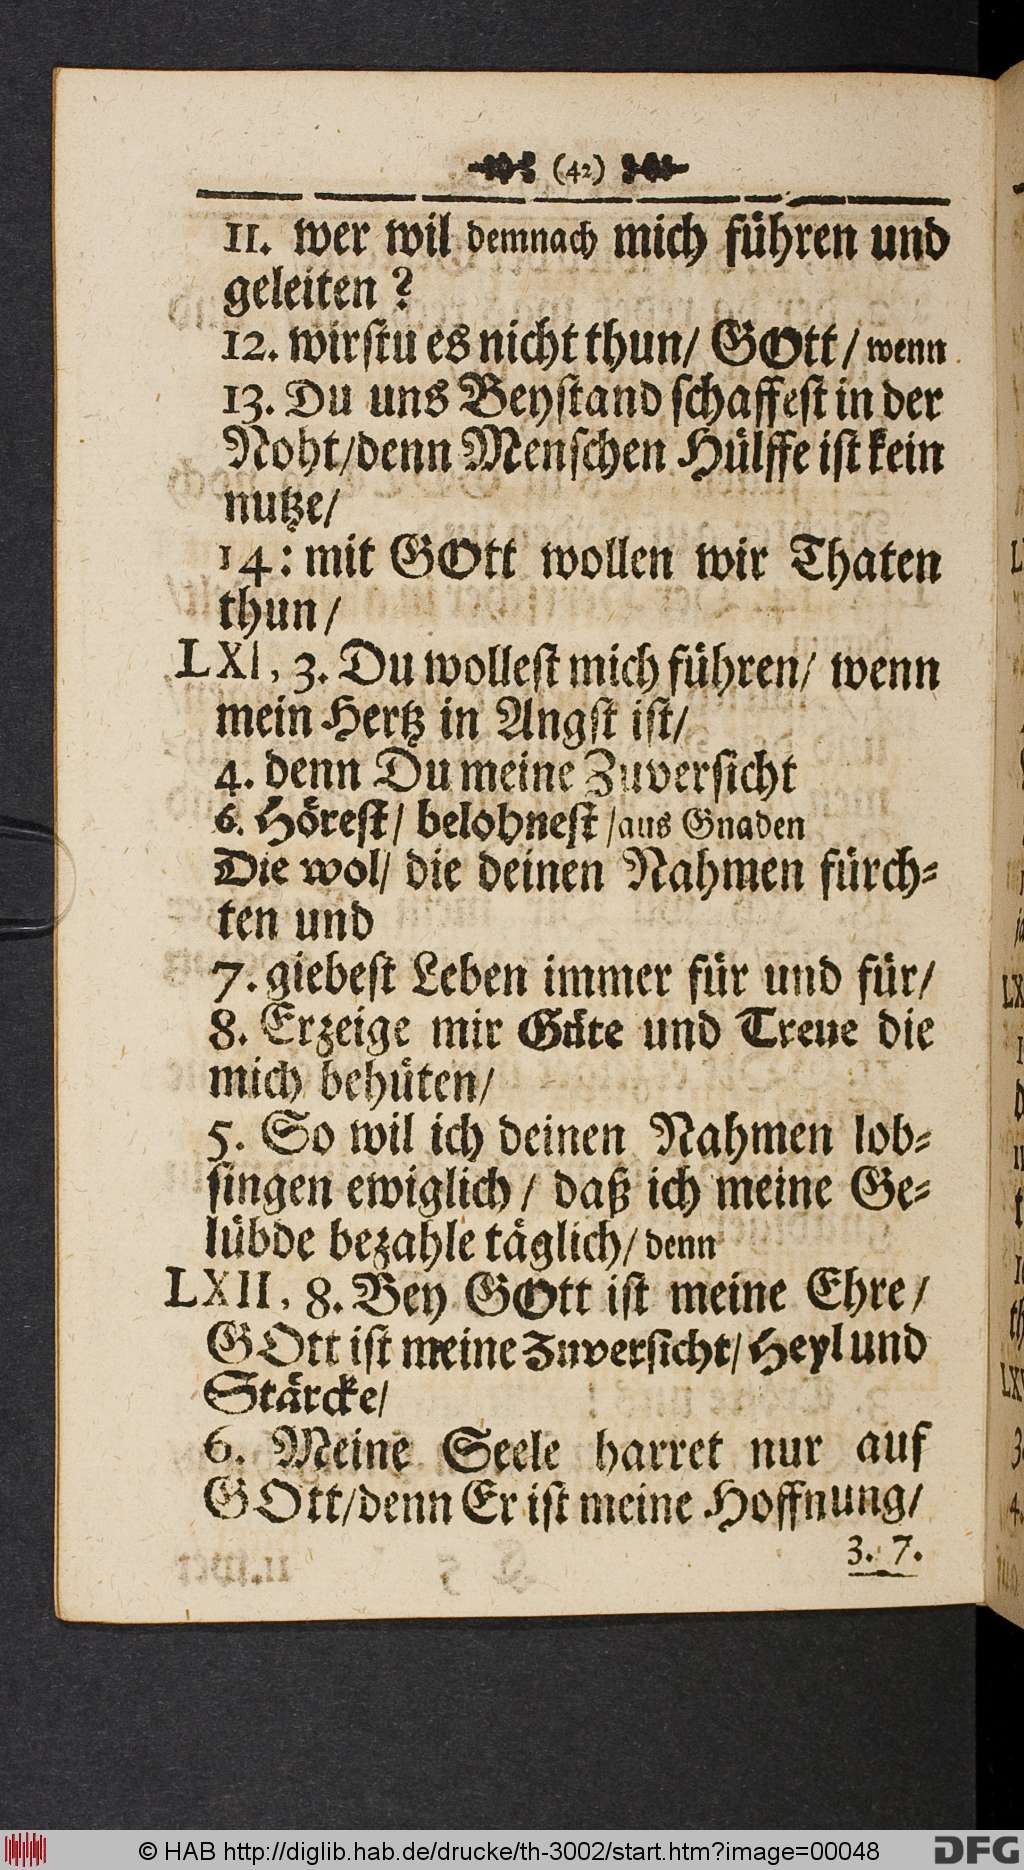 (42)
11. wer wil demnach mich führen und
geleiten?
12. wirstu es nicht thun/ GOtt/ wenn
13. Du uns Beystand schaffest in der
Noht/denn Menschen Hülffe ist kein
nutze/
14: mit GOtt wollen wir Thaten
thun/
LXI, 3. Du wollest mich führen/ wenn
mein Hertz in Angst ist/
4. denn Du meine Zuversicht
6. Hörest/ belohnest/aus Gnaden
Die wol/ die deinen Nahmen fürch-
ten und
7. giebest Leben immer für und für/
8. Erzeige mir Güte und Treue die
mich behüten/
5. So wil ich deinen Nahmen lob-
singen ewiglich/ daß ich meine Ge-
lübde bezahle täglich/ denn
LXII, 8. Bey GOtt ist meine Ehre/
GOtt ist meine Zuversicht/ Heyl und
Stärcke/
6. Meine Seele harret nur auf
GOtt/denn Er ist meine Hoffnung/
3. 7.
© HAB http://diglib.hab.de/drucke/th-3002/start.htm?image=00048
DFG